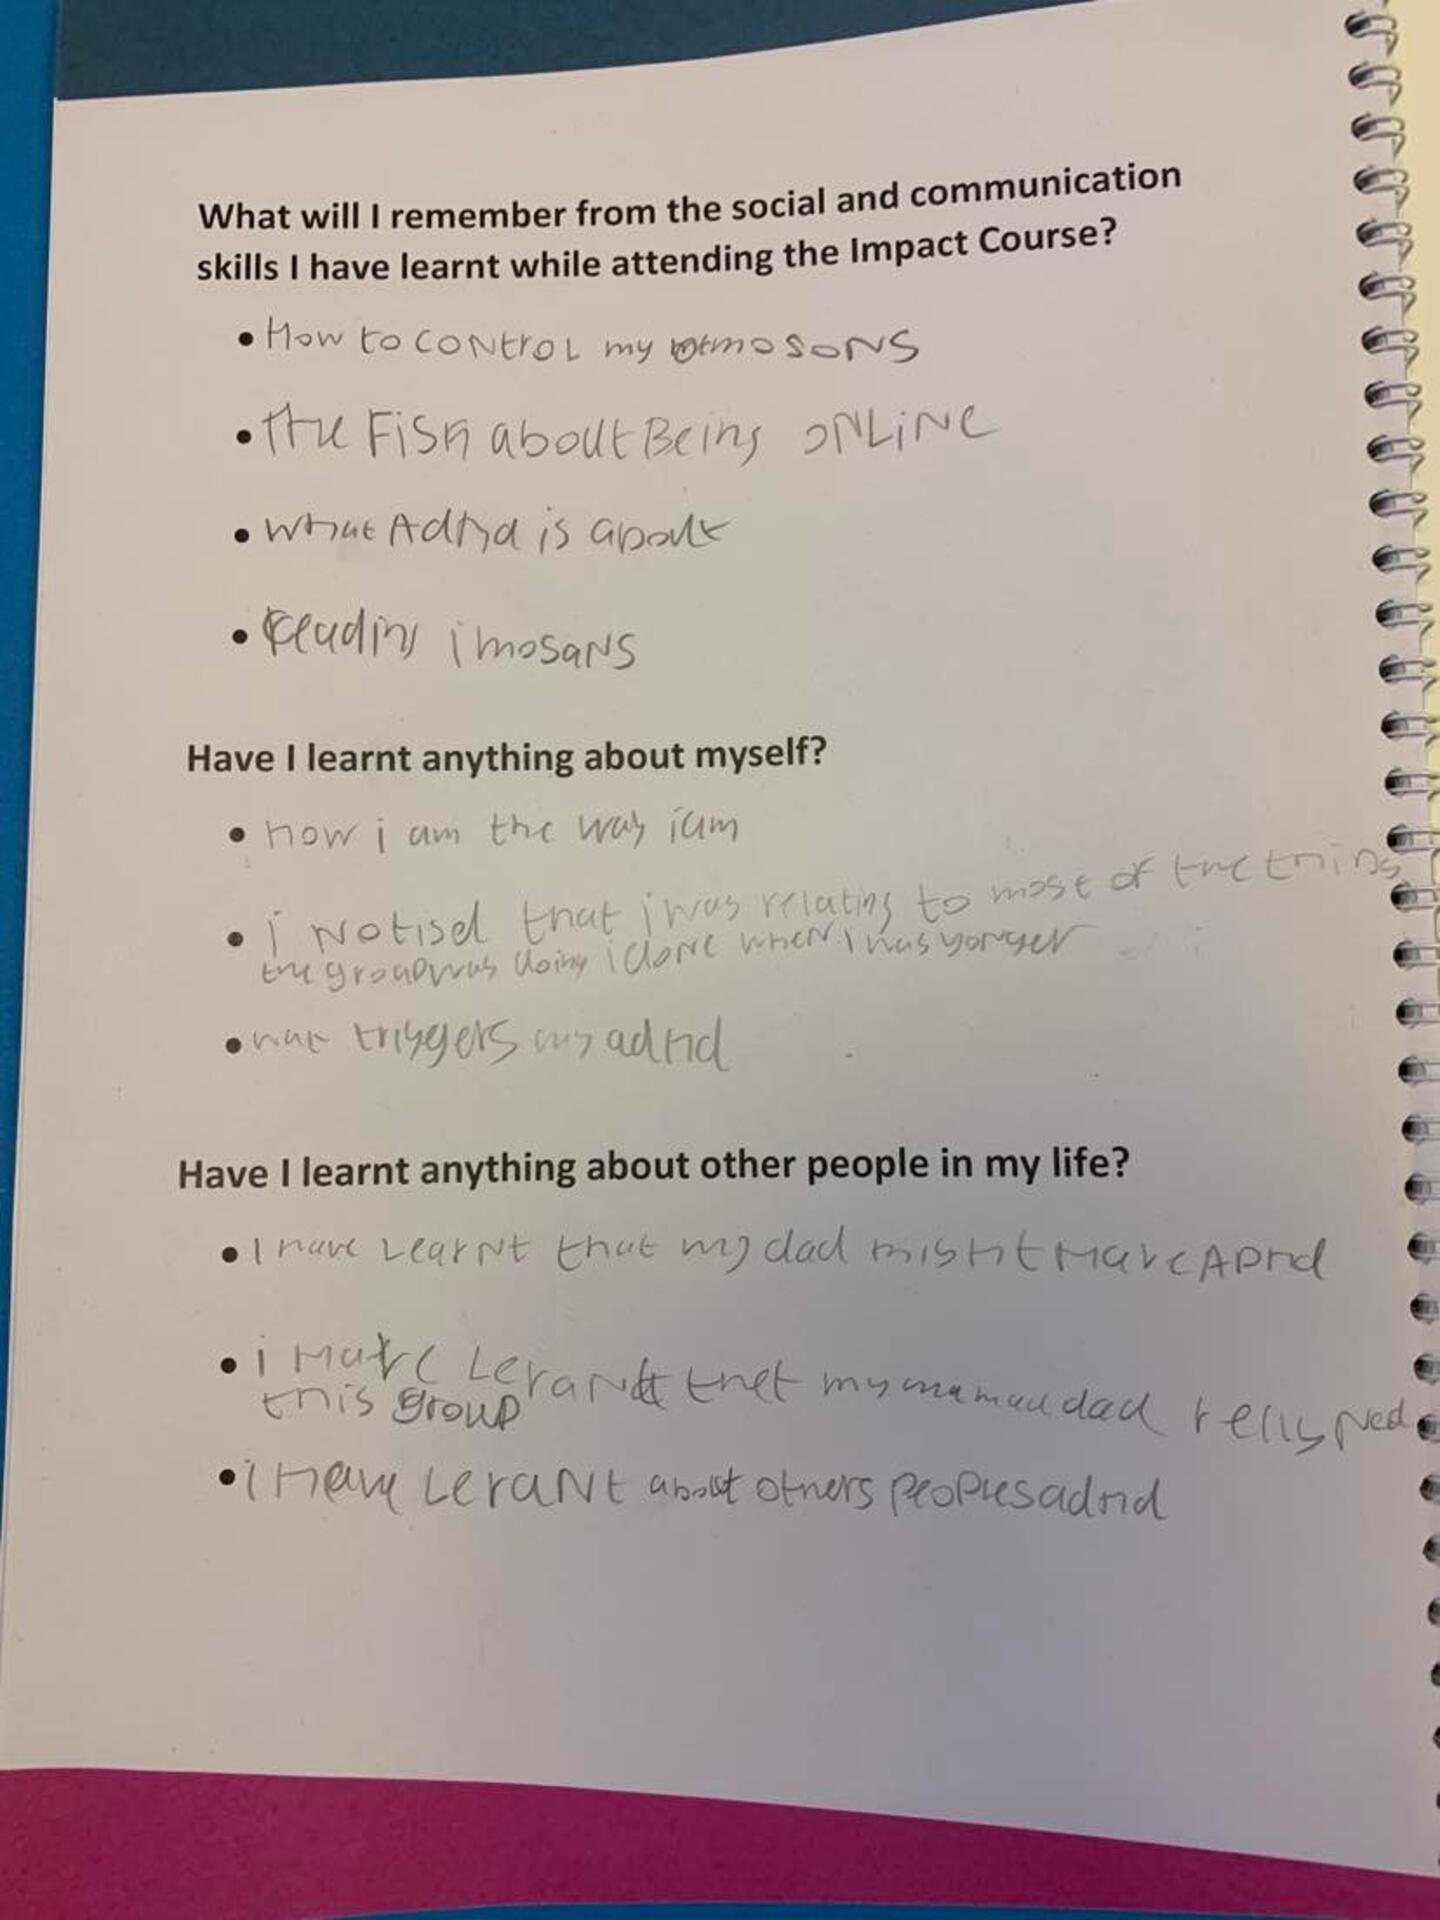 What will I remember from the social and communication
skills I have learnt while attending the Impact Course?
• How to control my emosons
• the Fish about Being ONLiNe
• what Adhd is about
• Reading imosans
Have I learnt anything about myself?
• how i am the way i am
• i Notised that i was relating to most of the things
the group was doing i done when i was yonger
• wat triggers my adhd
Have I learnt anything about other people in my life?
• I have Learnt that my dad might Have ADHd
• i Have Lerant thet my mam dad relly Ned
this group
• i Have LeraNt about others peoples adhd